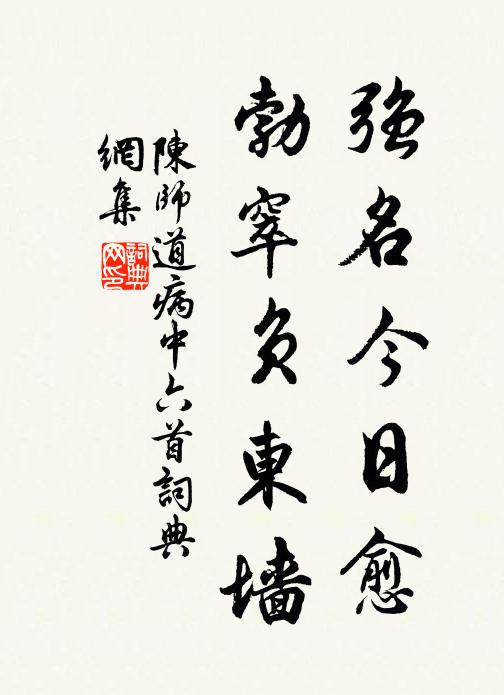 強名今日愈
勃窣負東墻
陳師道病中六首詞典
網集
詞典网印